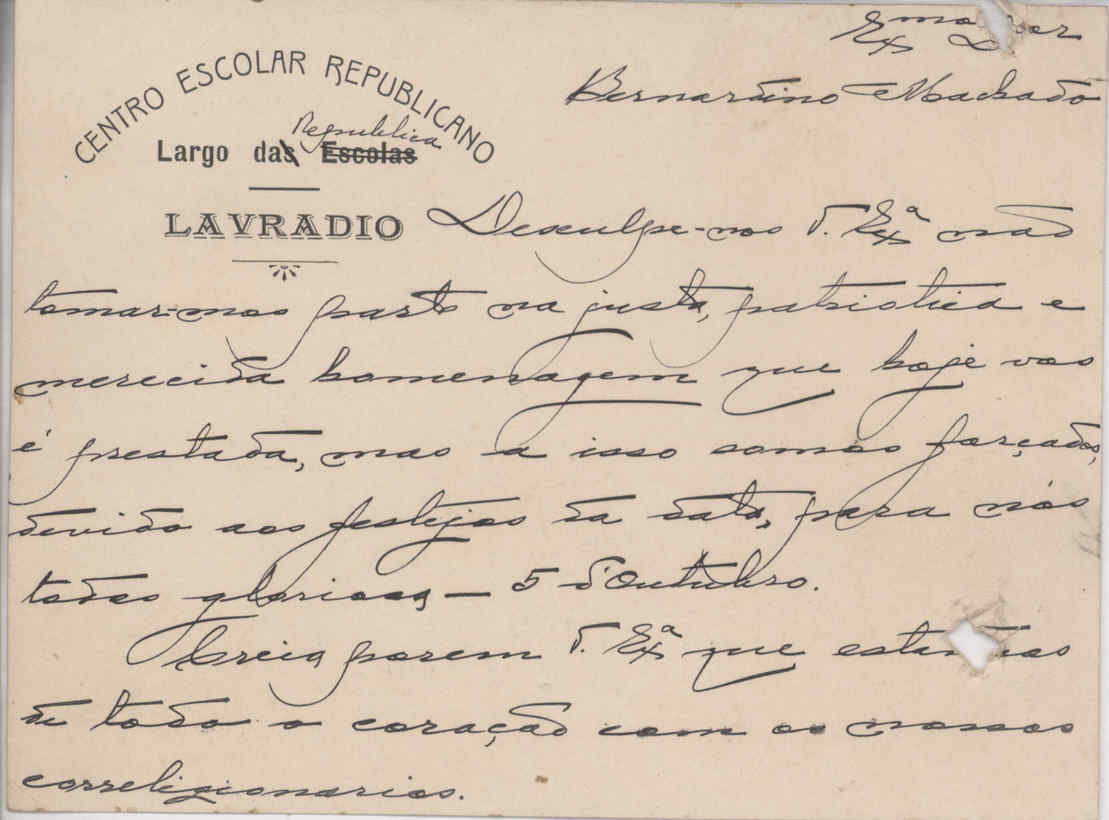 Exmo Snr
Bernardino Machado
CENTRO ESCOLAR REPUBLICANO
Republica
Largo das Escolas
LAVRADIO
Desculpe-nos V. Exª não
tomar-mos parte na justa, patriotica e
merecida homenagem que hoje vos
é prestada, mas a isso somos forçados,
devido aos festejos da data, para nós
todos gloriosa, — 5 d'Outubro.
Creia porem V. Exª que estamos
de todo o coração com os nossos
correligionarios.